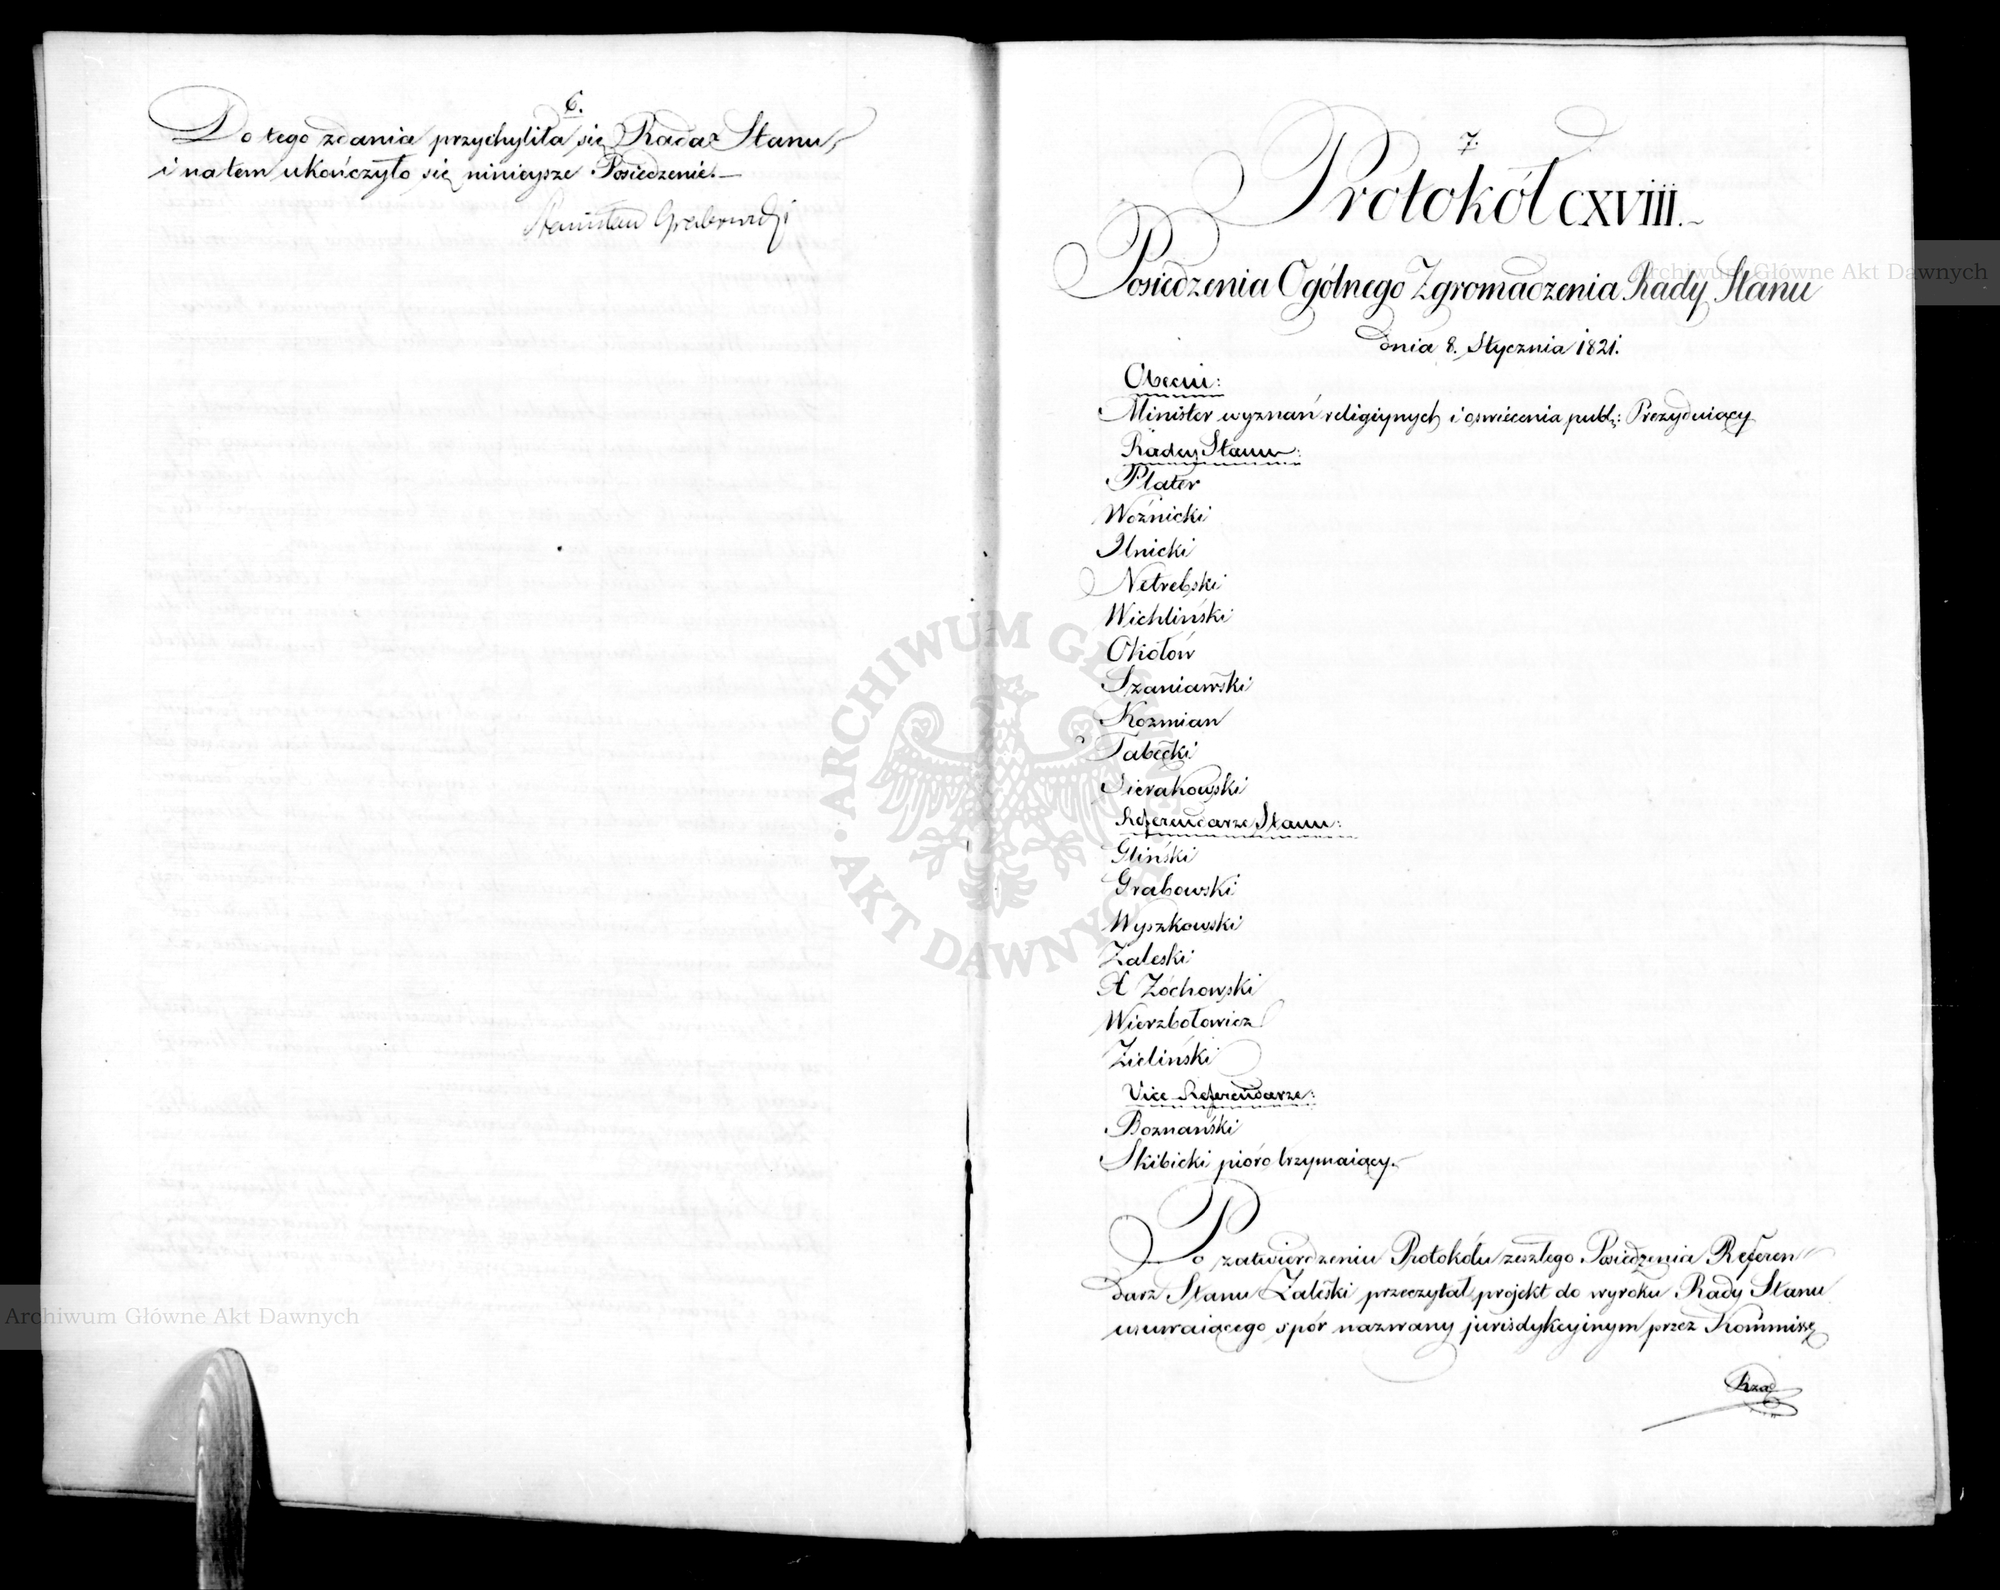 6.
Do tego zdania przychyliła się Rada Stanu,
i na tem ukończyło się ninieysze Posiedzenie.—
Stanisław Grabowski
7.
Protokół CXVIII.
Posiedzenia Ogólnego Zgromadzenia Rady Stanu
dnia 8. Stycznia 1821.
Obecni:
Minister wyznań religiynych i oświecenia publ: Prezyduiący
Radcy Stanu:
Plater
Woźnicki
Ilnicki
Netrebski
Wichliński
Okołów
Szaniawski
Kozmian
Tabęcki
Sierakowski
Referendarze Stanu:
Gliński
Grabowski
Wyszkowski
Zaleski
X Żóchowski
Wierzbołowicz
Zieliński
Vice Referendarze:
Boznański
Skibicki pióro trzymaiący.
Po zatwierdzeniu Protokółu zeszłego Posiedzenia Referen-
darz Stanu Zaleski przeczytał projekt do wyroku Rady Stanu
usuwaiącego spór nazwany jurisdykcyinym przez Kommissyę
Rząd
ARCHIWUM GŁÓWNE AKT DAWNYCH
Archiwum Główne Akt Dawnych
Archiwum Główne Akt Dawnych